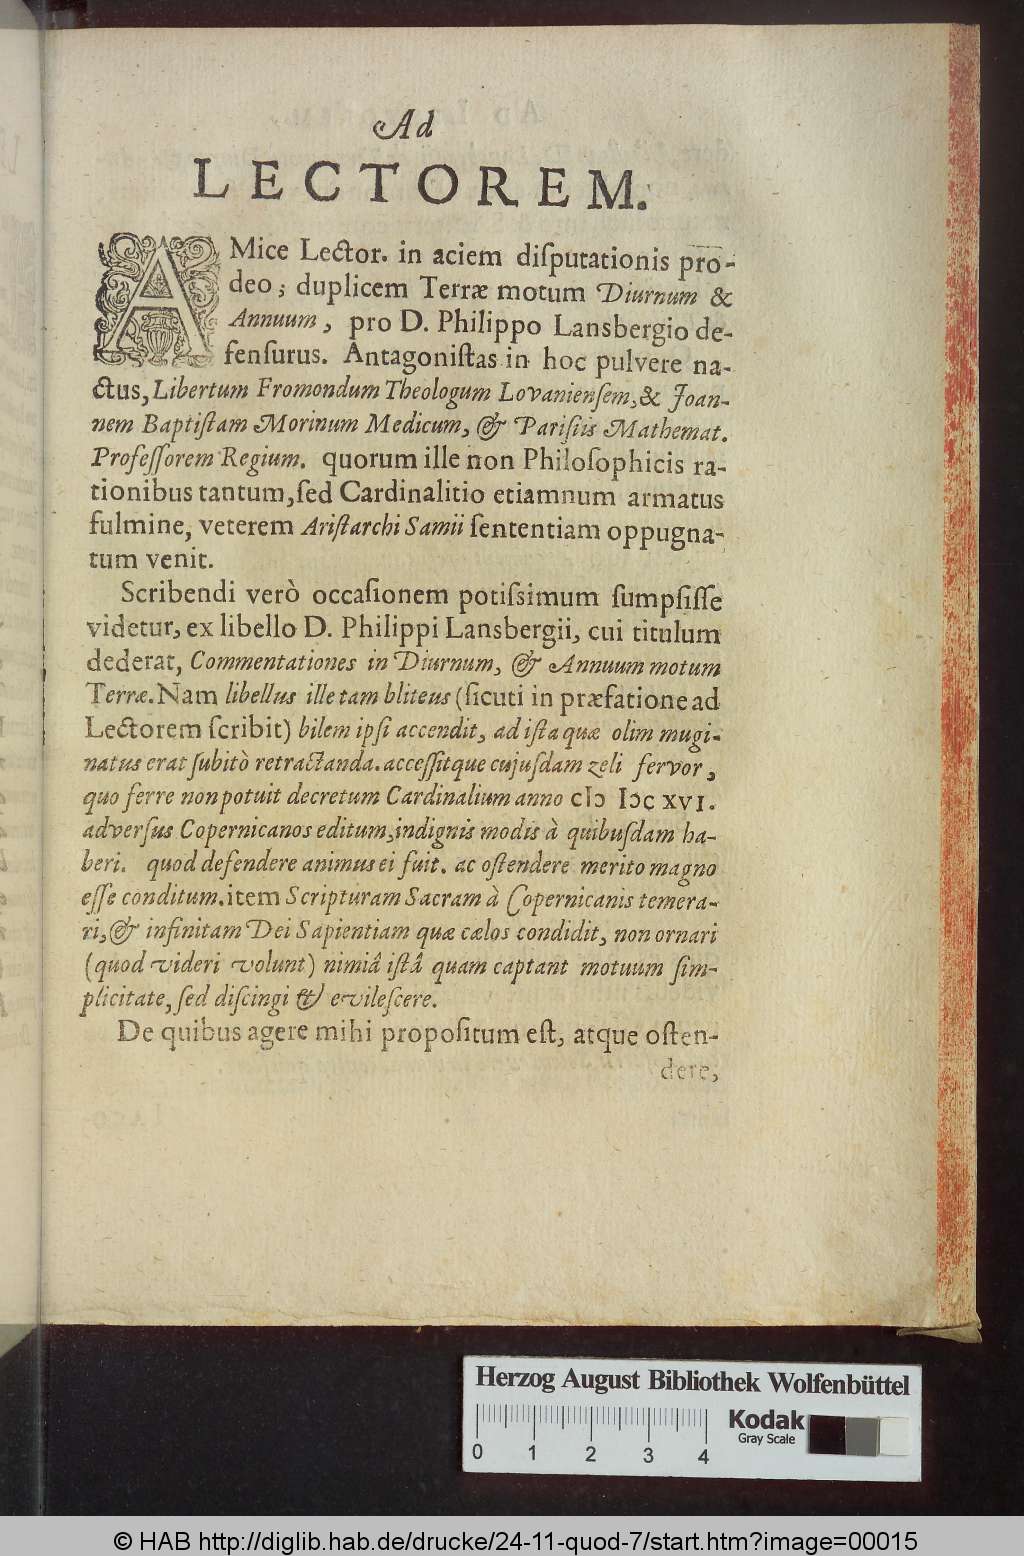 Ad
LECTOREM.
AMice Lector. in aciem diſputationis pro-
deo; duplicem Terræ motum Diurnum &
Annuum, pro D. Philippo Lansbergio de-
fenſurus. Antagoniſtas in hoc pulvere na-
ctus, Libertum Fromondum Theologum Lovanienſem, & Joan-
nem Baptiſtam Morinum Medicum, & Pariſiis Mathemat.
Profeſſorem Regium. quorum ille non Philoſophicis ra-
tionibus tantum, ſed Cardinalitio etiamnum armatus
fulmine, veterem Ariſtarchi Samii ſententiam oppugna-
tum venit.
Scribendi verò occaſionem potiſsimum ſumpſiſſe
videtur, ex libello D. Philippi Lansbergii, cui titulum
dederat, Commentationes in Diurnum, & Annuum motum
Terræ. Nam libellus ille tam bliteus (ſicuti in præfatione ad
Lectorem ſcribit) bilem ipſi accendit, ad iſta quæ olim mugi-
natus erat ſubitò retractanda. acceſſitque cujuſdam zeli fervor,
quo ferre non potuit decretum Cardinalium anno cIↄ Iↄc xvi.
adverſus Copernicanos editum, indignis modis à quibuſdam ha-
beri. quod defendere animus ei fuit. ac oſtendere merito magno
eſſe conditum. item Scripturam Sacram à Copernicanis temera-
ri, & infinitam Dei Sapientiam quæ cælos condidit, non ornari
(quod videri volunt) nimiâ iſtâ quam captant motuum ſim-
plicitate, ſed diſcingi & evileſcere.
De quibus agere mihi propoſitum eſt, atque oſten-
dere,
Herzog August Bibliothek Wolfenbüttel
0 1 2 3 4
Kodak
Gray Scale
© HAB http://diglib.hab.de/drucke/24-11-quod-7/start.htm?image=00015